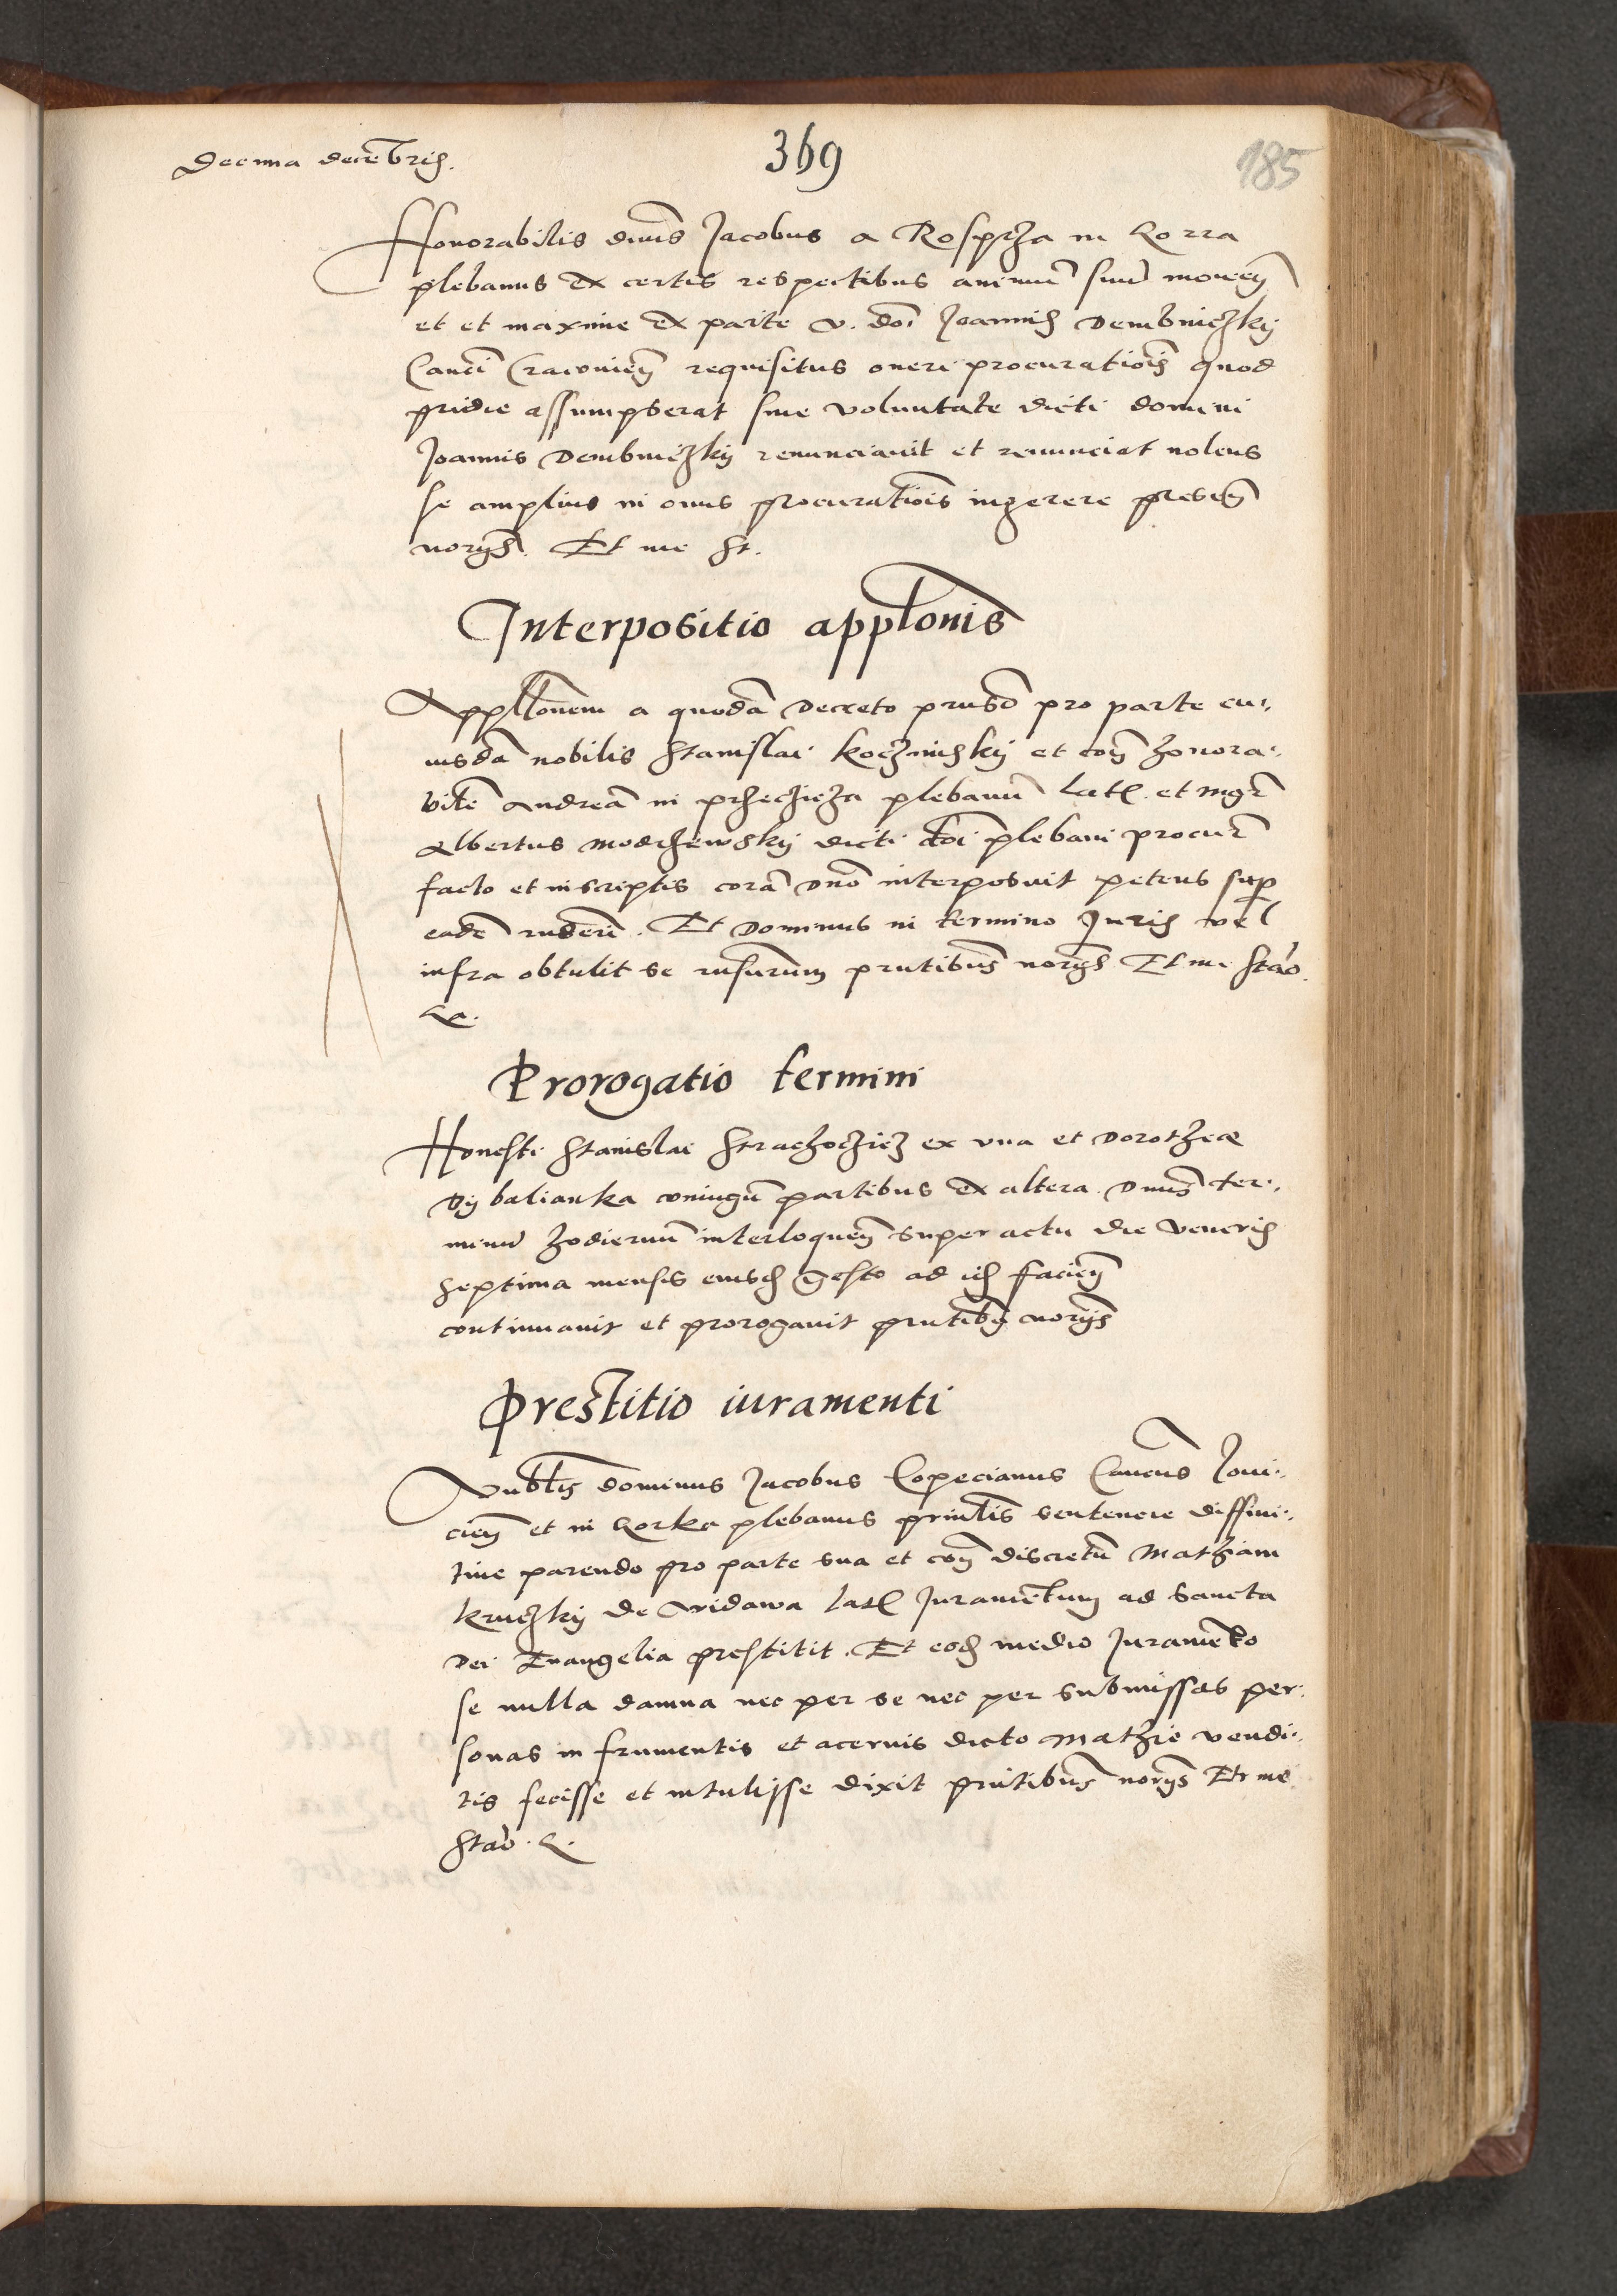 Decima decēbris.
369
185
Honorabilis dnūs Jacobus a Rosprza in Gorra
plebanus ex certis respectibus animū suū moueñ
et et maxime ex parte v. doī Joannis Dembniczkÿ
Canōi Cracouieñ requisitus oneri procuratiois quod
pridie assumpserat sine voluntate dicti domini
Joannis Dembniczkÿ renunciauit et renunciat nolens
se amplius in onus procuratiois ingerere preseñ
norijs. Et me St.
Interpositio applonis
Appllonem a quodā Decreto prusō pro parte cu-
iusdā nobilis Stanislai et coñ honora-
bilē Andreā in plebanū latl. et mgr̄
Albertus modrzewskÿ dicti doī plebani procur̄
facto et in scriptis corā Dnō interposuit petens sup
eadē ruderi. Et Dominus in termino Juris vel
infra obtulit se rūsurum prntibus norijs Et me Stāo.
&c.
Prorogatio termini
Honesti Stanislai Strachoczicz ex vna et Dorotheæ
Dÿbalianka coniugū partibus ex altera Dnūs ter-
minū hodiernū interloqueñ super actu die Veneris
septima mensis eiusd gesto ad id facieñ
continuauit et prorogauit prntibus norijs
Prestitio iuramenti
Vnblis dominus Jacobus Copecianus Canōus Loui-
cieñ et in Gorka plebanus sentencie diffini-
tiue parendo pro parte sua et coñ discretū Mathiam
kruczkÿ de Widawa latl Juramētum ad Sancta
Dei Euangelia prestitit. Et eod medio Juramēto
se nulla damna nec per se nec per submissas per-
sonas in frumentis et aceruis dicto Mathie vendi-
tis fecisse et intulisse dixit prntibus norijs Et me
Stāo. &.